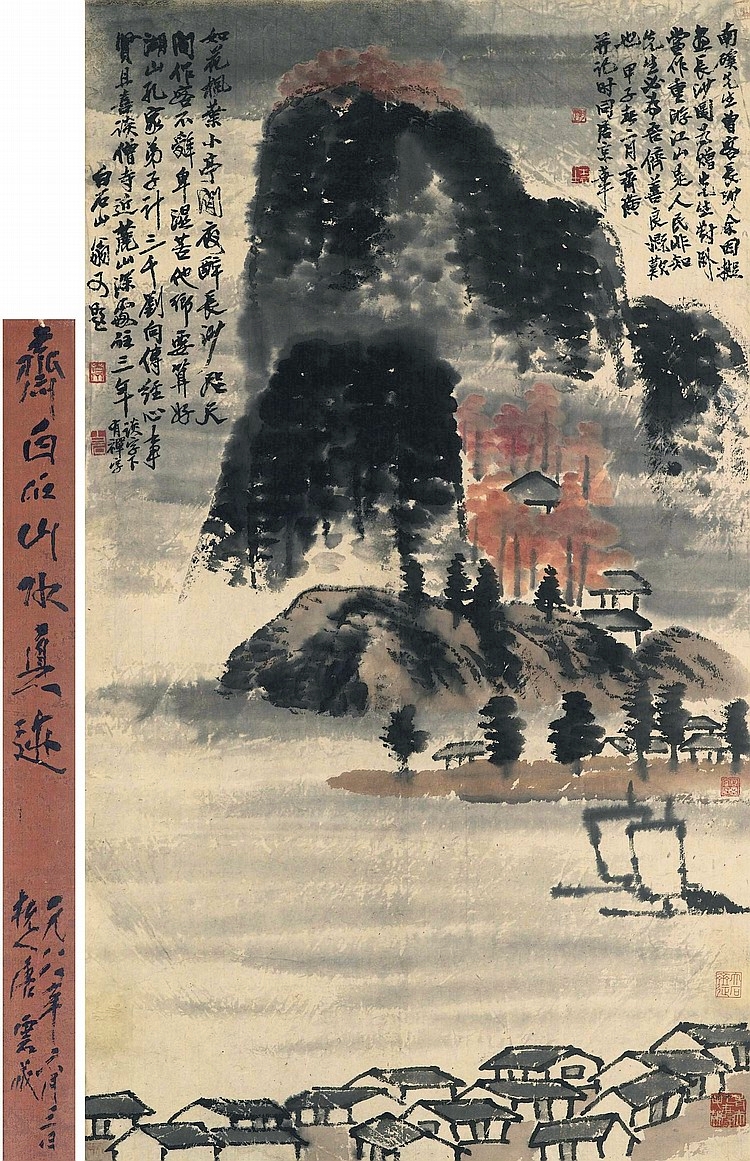 南陔先生曾客長沙余因擬
畫長沙圖為贈先生對此
當作重游江山是人民非知
先生必存吾儕善良
也甲子春二月齊璜
并記時同居京華
如花楓葉小亭閒夜醉長沙天
閒作客不辭卑濕苦他鄉要算好
湖山孔家弟子計三千劉向傳經心事
賢且喜談僧寺近麓山深處住三年
談字下
有禪字
白石山翁又題
齊白石山水真迹
一九八八年六月三日
唐雲識